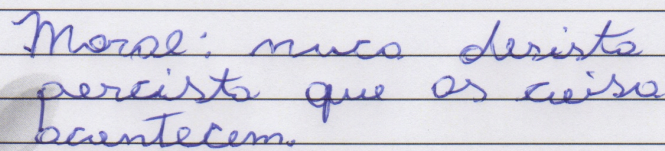 Moral: nuca desista
percista que as coisa
acontecem.